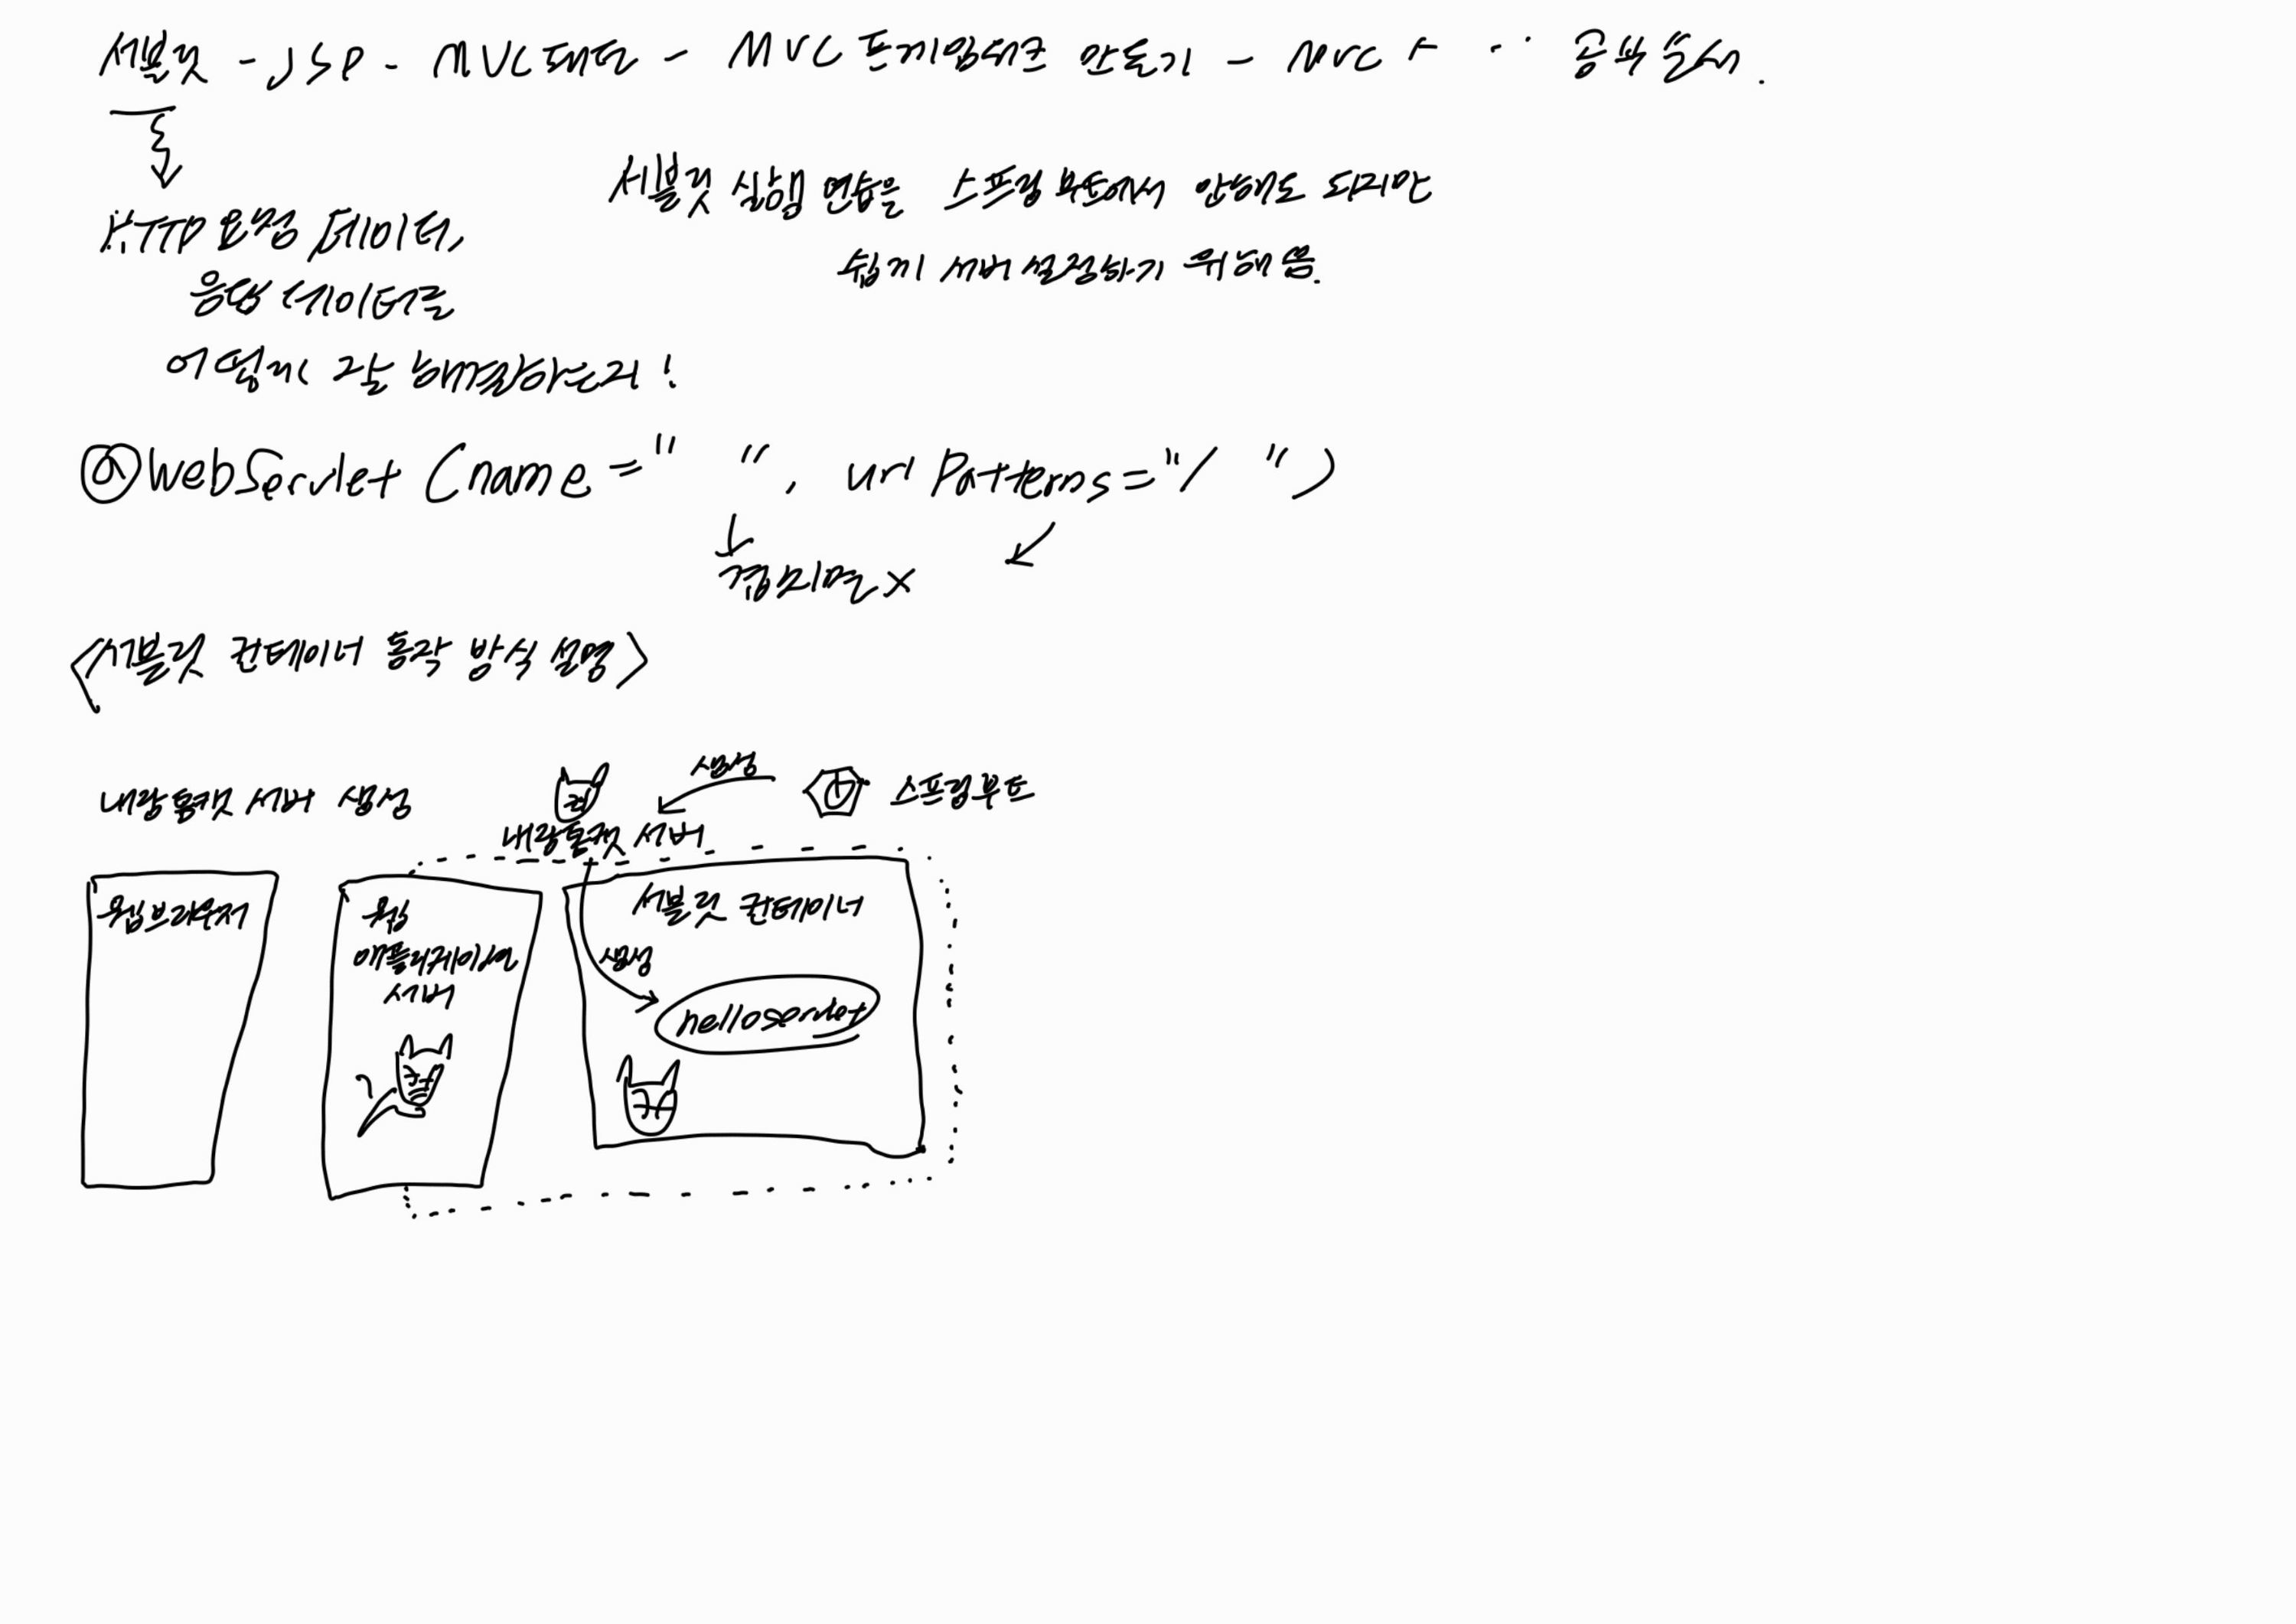 서블릿 - JSP - MVC패턴 - MVC 프레임워크 만들기 - MVC 공부 순서.
서블릿 실행 연습을 스프링 부트에서 안해도 되지만
쉽게 서버 설정하기 위해 씀.
HTTP 요청 데이터,
응답 데이터를
어떻게 잘 해결하는지!
@WebServlet (name = " ", urlPatterns = "/ ")
겹치면 x
<서블릿 컨테이너 동작 방식 설명>
내장 톰캣 서버 생성
생성
스프링부트
내장 톰캣 서버
웹브라우저
웹
애플리케이션
서버
서블릿 컨테이너
생성
helloServlet